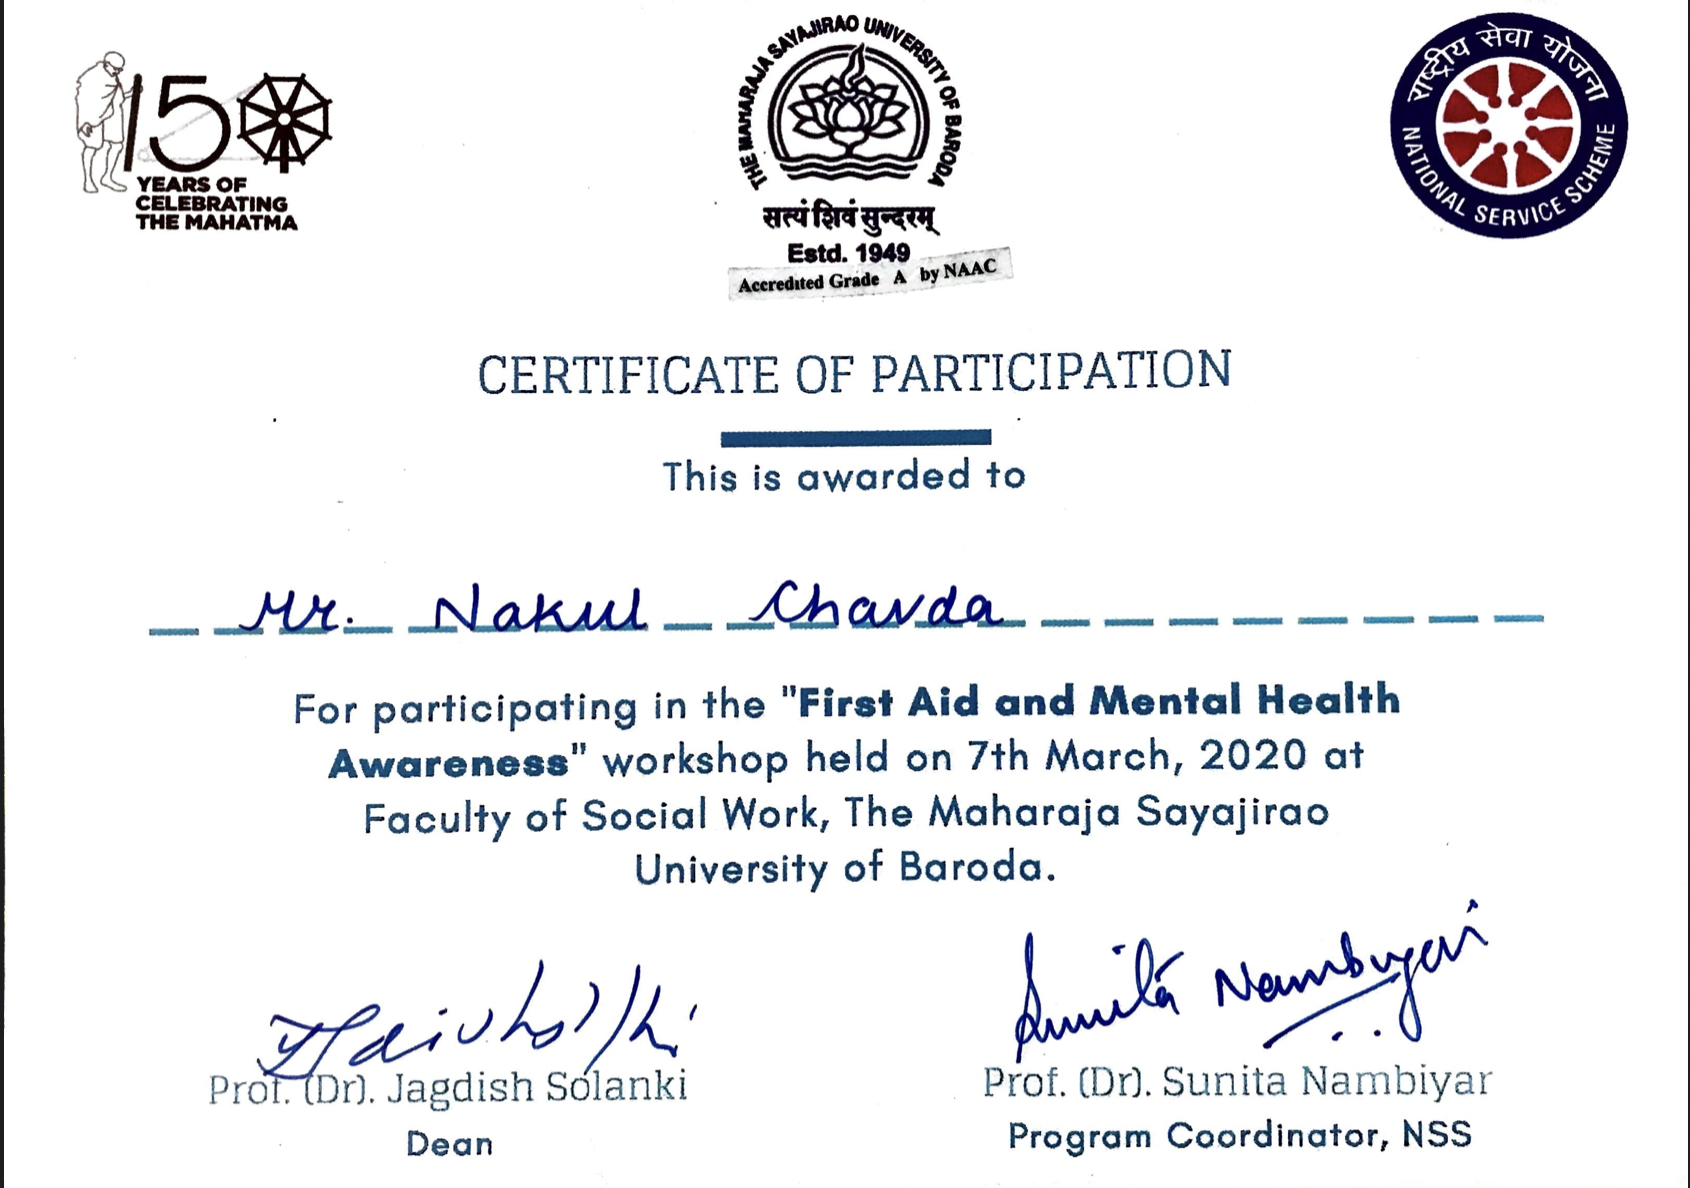 150
YEARS OF
CELEBRATING
THE MAHATMA
THE MAHARAJA SAYAJIRAO UNIVERSITY OF BARODA
सत्यं शिवं सुन्दरम्
Estd. 1949
Accredited Grade A by NAAC
राष्ट्रीय सेवा योजना
NATIONAL SERVICE SCHEME
CERTIFICATE OF PARTICIPATION
This is awarded to
Mr. Nakul Chavda
For participating in the "First Aid and Mental Health
Awareness" workshop held on 7th March, 2020 at
Faculty of Social Work, The Maharaja Sayajirao
University of Baroda.
Sunita Nambiyar
Prof. (Dr). Jagdish Solanki
Dean
Prof. (Dr). Sunita Nambiyar
Program Coordinator, NSS